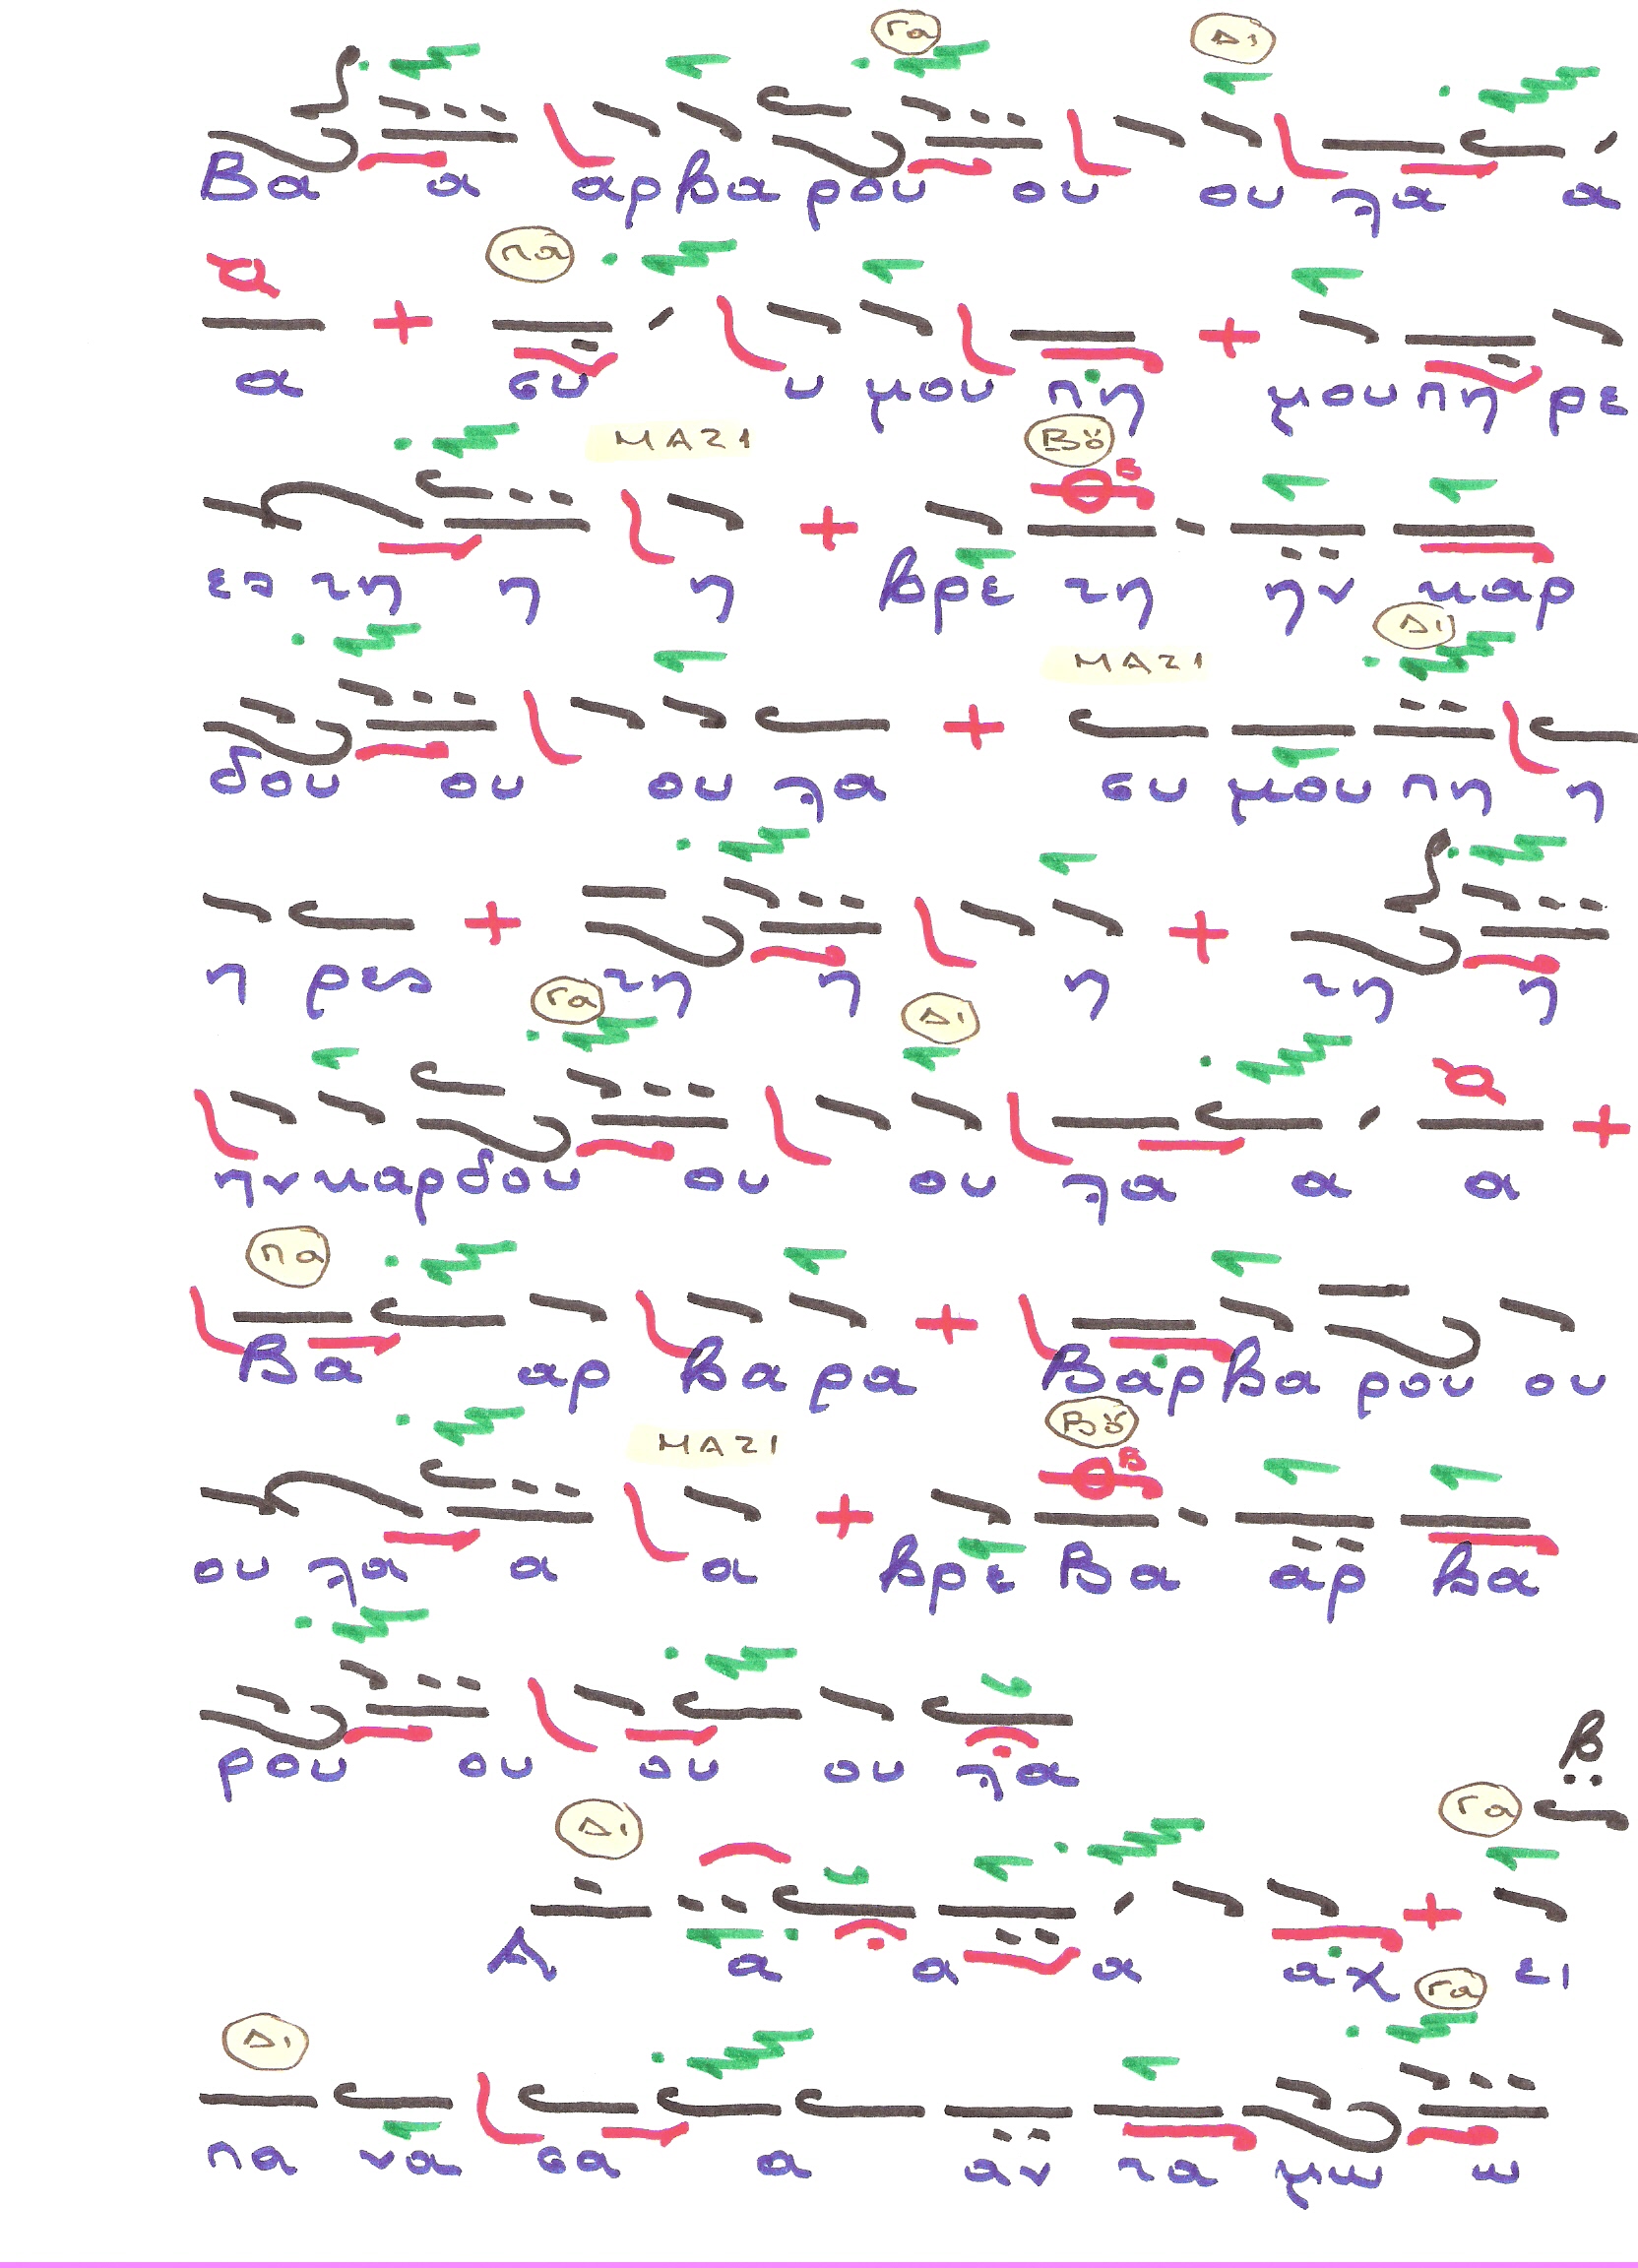 Γα Δι
Βα α αρβα ρου ου ου λα α
Πα
α συ υ μου πη μου πη ρε
ΜΑΖΙ Βου
ες τη η η βρε τη ην καρ
Δι
ΜΑΖΙ
δου ου ου λα συ μου πη η
η ρες τη η η τη η
Γα Δι
ην καρδου ου ου λα α α
Πα
Βα αρ βα ρα Βαρβα ρου ου
ΜΑΖΙ Βου
ου λα α α βρε Βα αρ βα
ρου ου ου ου λα
β
Δι Γα
Α α α α αχ ει
Δι Γα
πα να σα α αν τα μω ω